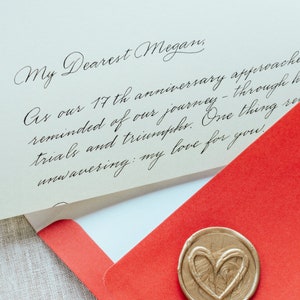 My Dearest Megan,
As our 17th anniversary approache
reminded of our journey - through
trials and triumphs. One thing
unwavering: my love for you